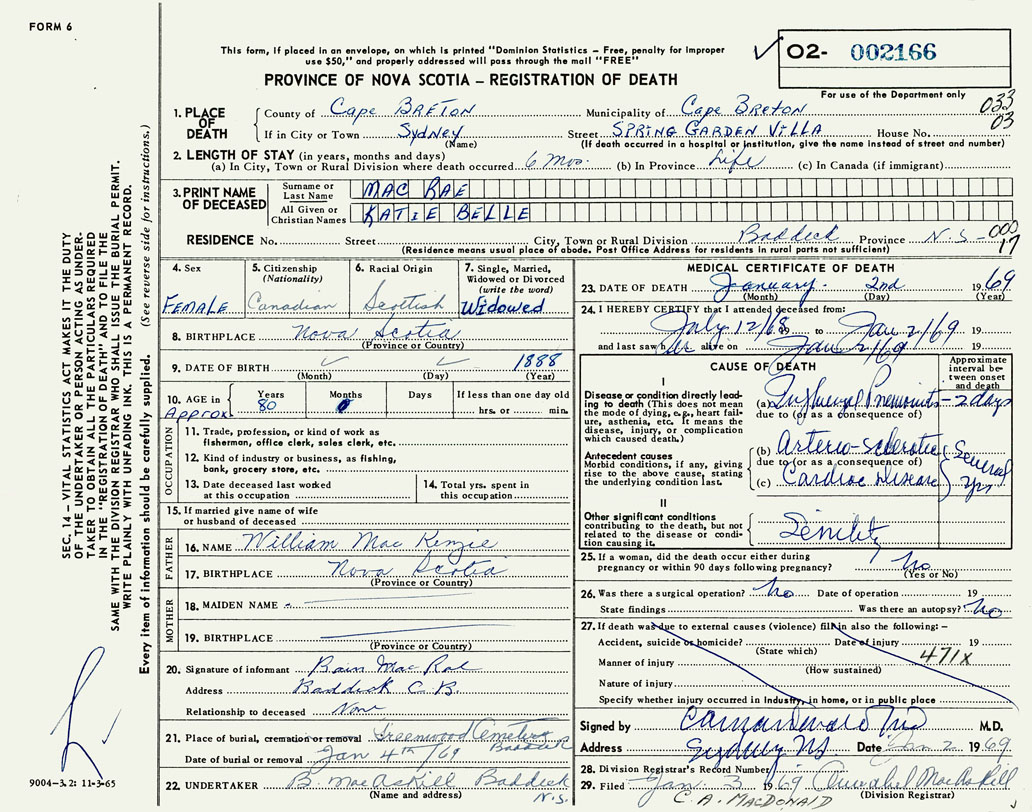 FORM 6
This form, if placed in an envelope, on which is printed "Dominion Statistics – Free, penalty for improper
use $50," and properly addressed will pass through the mail "FREE"
PROVINCE OF NOVA SCOTIA – REGISTRATION OF DEATH
O2- 002166
For use of the Department only
033
03
1. PLACE OF DEATH
County of Cape BRETON Municipality of Cape Breton
If in City or Town Sydney Street SPRING GARDEN VILLA House No.
(Name) (If death occurred in a hospital or institution, give the name instead of street and number)
2. LENGTH OF STAY (in years, months and days)
(a) In City, Town or Rural Division where death occurred. 6 Mos. (b) In Province Life (c) In Canada (if immigrant)
3. PRINT NAME OF DECEASED
Surname or Last Name MAC RAE
All Given or Christian Names KATIE BELLE
RESIDENCE No. Street City, Town or Rural Division Baddeck Province N.S. - 000
17
(Residence means usual place of abode. Post Office Address for residents in rural parts not sufficient)
4. Sex
FEMALE
5. Citizenship
(Nationality)
Canadian
6. Racial Origin
Scottish
7. Single, Married, Widowed or Divorced
(write the word)
Widowed
8. BIRTHPLACE Nova Scotia
(Province or Country)
9. DATE OF BIRTH 1888
(Month) (Day) (Year)
10. AGE in Years Months Days If less than one day old
Approx 80 0 hrs. or min.
OCCUPATION
11. Trade, profession, or kind of work as
fisherman, office clerk, sales clerk, etc.
12. Kind of industry or business, as fishing,
bank, grocery store, etc.
13. Date deceased last worked
at this occupation
14. Total yrs. spent in
this occupation
15. If married give name of wife
or husband of deceased
FATHER
16. NAME William Mac Kenzie
17. BIRTHPLACE Nova Scotia
(Province or Country)
MOTHER
18. MAIDEN NAME
19. BIRTHPLACE
(Province or Country)
20. Signature of informant Bain Mac Rae
Address Baddeck C.B.
Relationship to deceased None
21. Place of burial, cremation or removal Greenwood Cemetery
Baddeck
Date of burial or removal Jan 4th/69
22. UNDERTAKER B. MacAskill Baddeck
N.S.
(Name and address)
MEDICAL CERTIFICATE OF DEATH
23. DATE OF DEATH January 2nd 1969
(Month) (Day) (Year)
24. I HEREBY CERTIFY that I attended deceased from:
July 12/68 19 to Jan 2/69 19
and last saw her alive on Jan 2/69 19
CAUSE OF DEATH
Approximate interval between onset and death
I
Disease or condition directly leading to death (This does not mean
the mode of dying, e.g., heart failure, asthenia, etc. It means the
disease, injury, or complication
which caused death.)
(a) Influenzal Pneumonitis - 2 days
due to (or as a consequence of)
Antecedent causes
Morbid conditions, if any, giving
rise to the above cause, stating
the underlying condition last.
(b) Arterio-sclerotic
due to (or as a consequence of)
(c) Cardiac Disease
Several
yrs
II
Other significant conditions
contributing to the death, but not
related to the disease or condition causing it.
Senility
25. If a woman, did the death occur either during
pregnancy or within 90 days following pregnancy? No
(Yes or No)
26. Was there a surgical operation? No Date of operation 19
State findings Was there an autopsy? No
27. If death was due to external causes (violence) fill in also the following: –
Accident, suicide or homicide? Date of injury 19
(State which)
Manner of injury 471X
(How sustained)
Nature of injury
Specify whether injury occurred in Industry, in home, or in public place
Signed by M.D.
Address Sydney NS. Date Jan 2 1969
28. Division Registrar's Record Number
29. Filed Jan 3 1969 Annabel MacAskill
C. A. MACDONALD (Division Registrar)
SEC. 14 – VITAL STATISTICS ACT MAKES IT THE DUTY
OF THE UNDERTAKER OR PERSON ACTING AS UNDERTAKER TO OBTAIN ALL THE PARTICULARS REQUIRED
IN THE "REGISTRATION OF DEATH" AND TO FILE THE
SAME WITH THE DIVISION REGISTRAR WHO SHALL ISSUE THE BURIAL PERMIT.
WRITE PLAINLY WITH UNFADING INK. THIS IS A PERMANENT RECORD.
Every item of information should be carefully supplied. (See reverse side for instructions.)
9004-3.2: 11-3-65